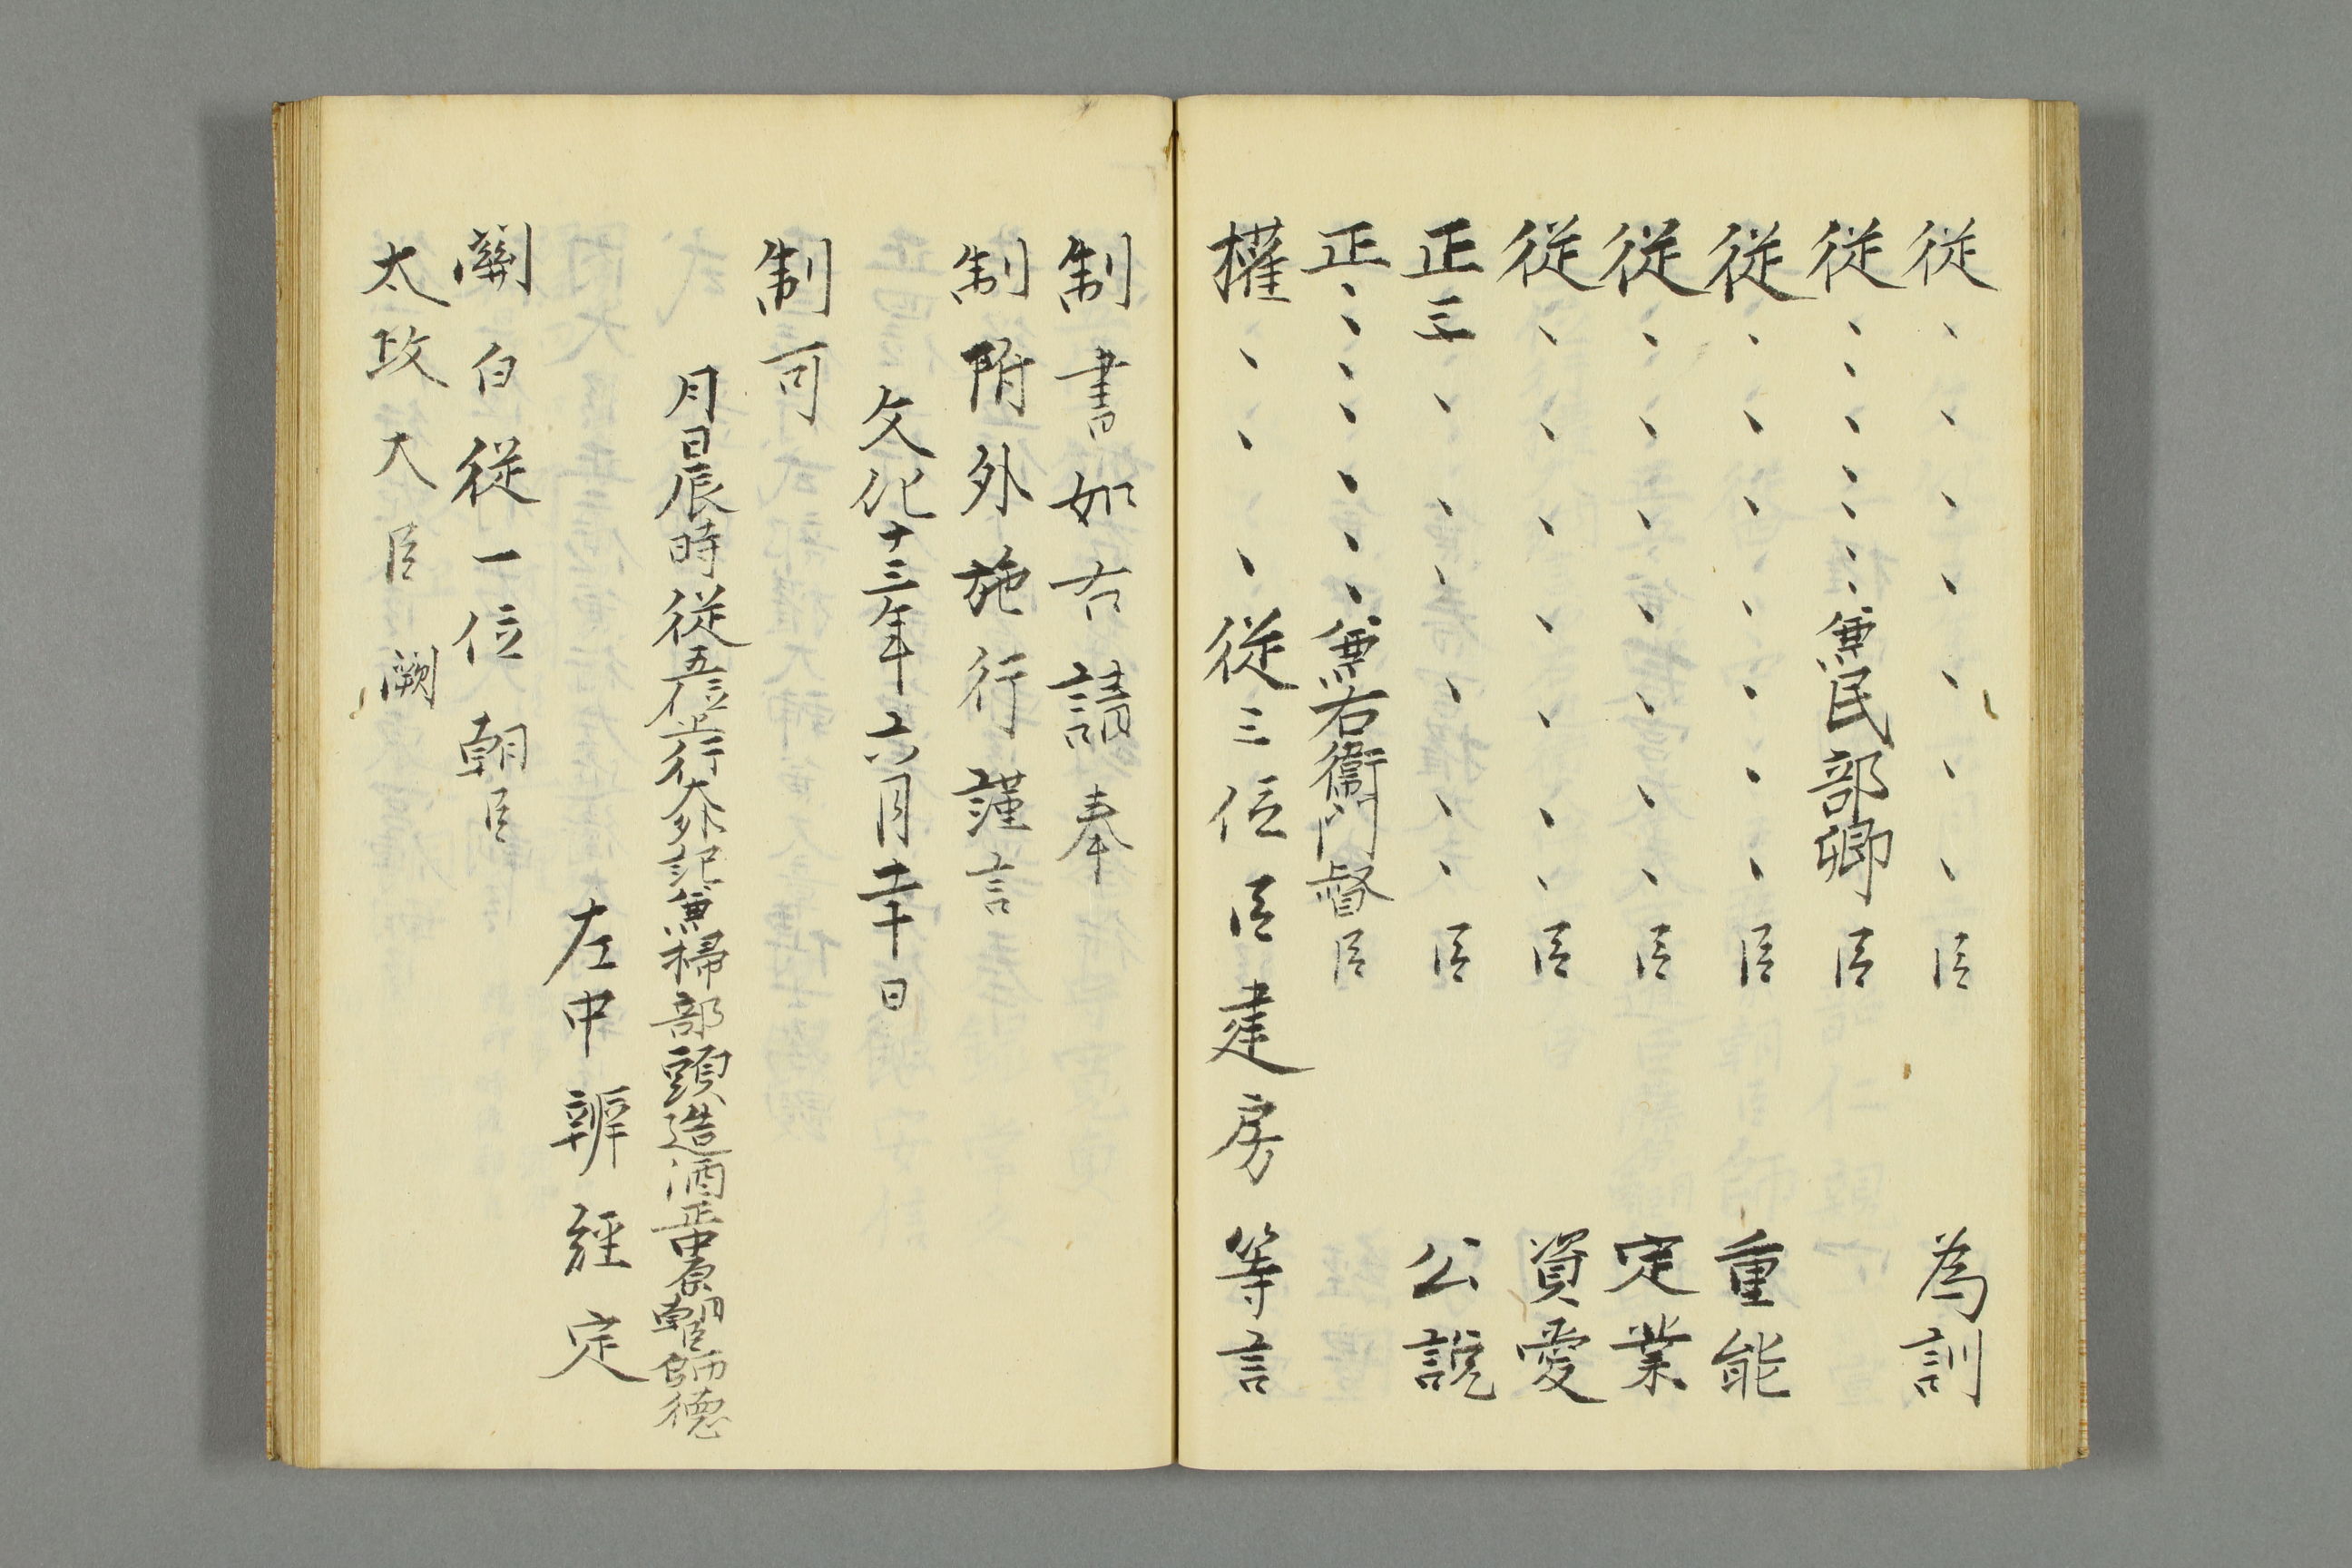 従、、、、、、、臣　為訓
従、、、、、、、兼民部卿臣
従、、、、、、、臣　重能
従、、、、、、、臣　定業
従、、、、、、、臣　資愛
正三、、、、、、臣　公説
正、、、、、、、兼右衛門督臣
權、、、従三位臣建房　等言
制書如右請奉
制附外施行謹言
文化十三年六月　日
制可
月日辰時従五位上行大外記兼掃部頭造酒正中原朝臣師徳
左中辨経定
関白従一位朝臣
太政大臣　闕